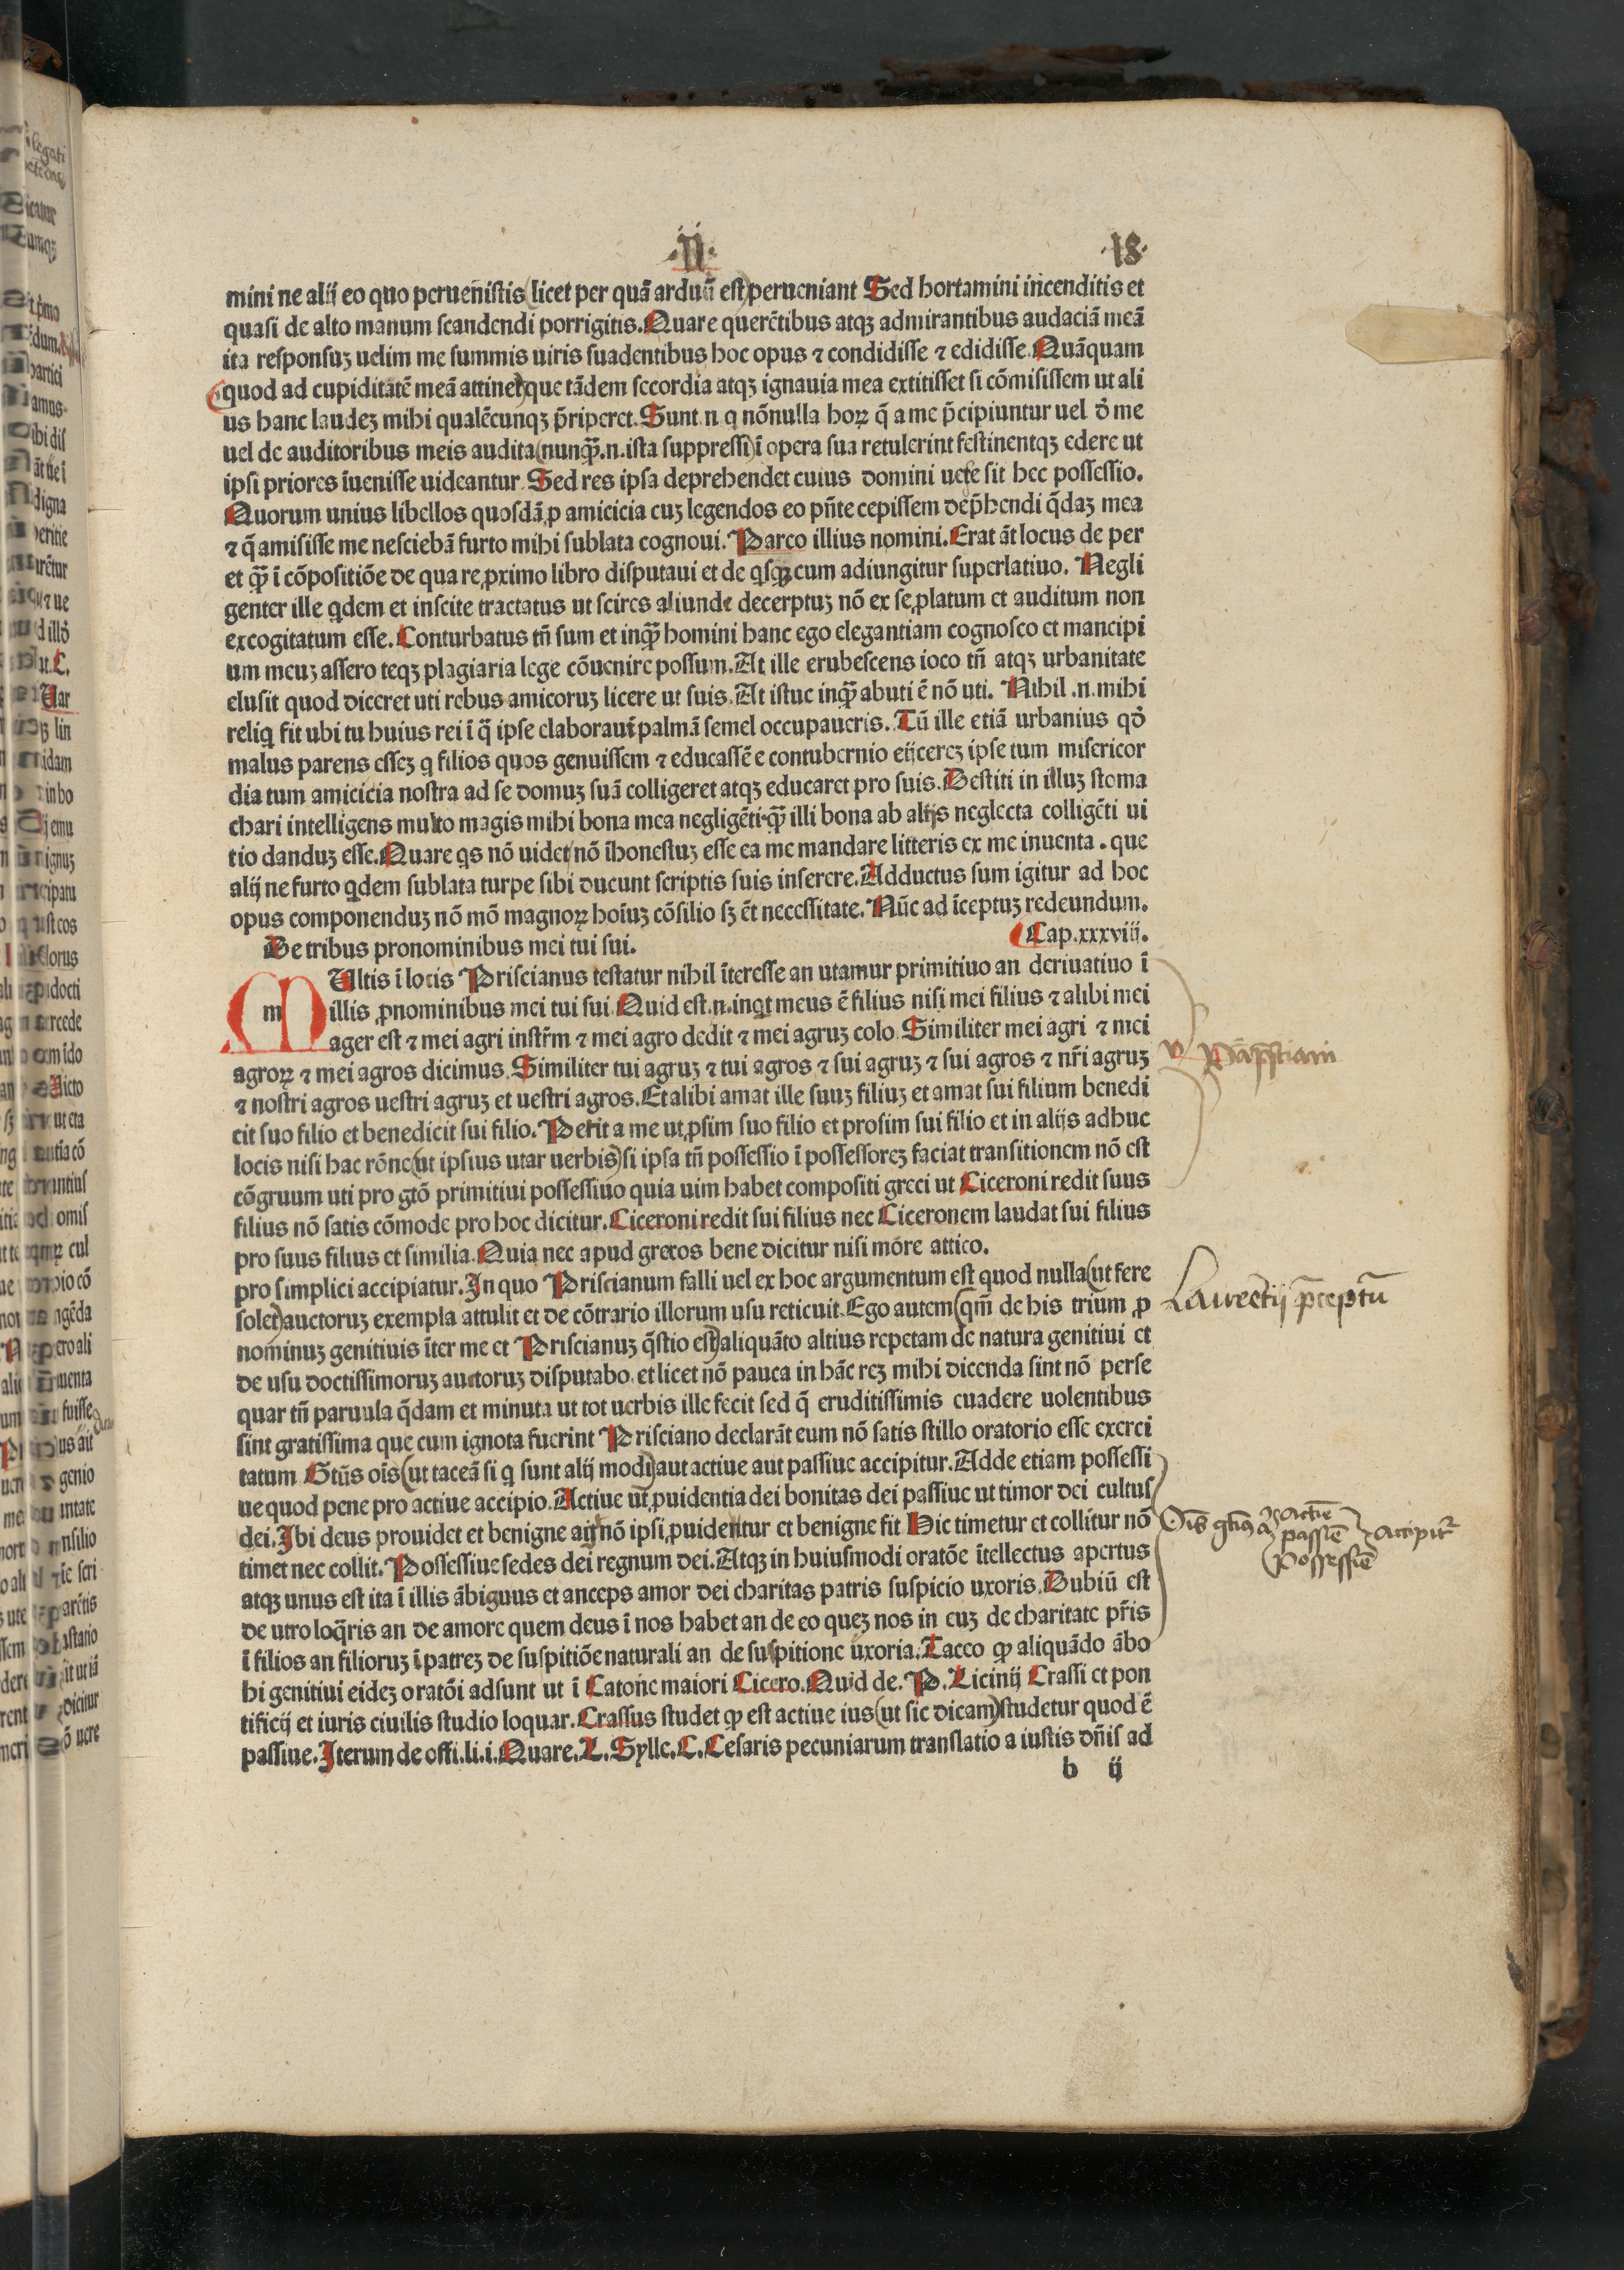 ·II· ·18·
mini ne alij eo quo peruēistis (licet per quā arduū est) perueniant Sed hortamini incenditis et
quasi de alto manum scandendi porrigitis. Quare querētibus atqꝫ admirantibus audaciā meā
ita responsuꝫ uelim me summis uiris suadentibus hoc opus ⁊ condidisse ⁊ edidisse. Quāquam
quod ad cupiditatē meā attinet que tādem secordia atqꝫ ignauia mea extitisset si cōmisissem ut ali
us hanc laudeꝫ mihi qualēcunqꝫ p̄riperet. Sunt .n. q nōnulla hoꝝ q̄ a me p̄cipiuntur uel d̓ me
uel de auditoribus meis audita (nunqꝫ̄ .n. ista suppressi) ī opera sua retulerint festinentqꝫ edere ut
ipsi priores īuenisse uideantur. Sed res ipsa deprehendet cuius domini uere sit hec possessio.
Quorum unius libellos quosdā ꝓ amicicia cuꝫ legendos eo pñte cepissem dep̄hendi q̄daꝫ mea
⁊ q̄ amisisse me nesciebā furto mihi sublata cognoui. Parco illius nomini. Erat āt locus de per
et qꝫ̄ ī cōpositiōe de qua re ꝓximo libro disputaui et de qsqꝫ cum adiungitur superlatiuo. Negli
genter ille qdem et inscite tractatus ut scires aliunde decerptuꝫ nō ex se ꝓlatum et auditum non
excogitatum esse. Conturbatus tñ sum et inqꝫ̄ homini hanc ego elegantiam cognosco et mancipi
um meuꝫ assero teqꝫ plagiaria lege cōuenire possum. At ille erubescens ioco tñ atqꝫ urbanitate
elusit quod diceret uti rebus amicoruꝫ licere ut suis. At istuc inqꝫ̄ abuti ē nō uti. Nihil .n. mihi
reliq fit ubi tu huius rei ī q̄ ipse elaboraui palmā semel occupaueris. Tū ille etiā urbanius qd̓
malus parens esseꝫ q filios quos genuissem ⁊ educassē e contubernio eijcereꝫ ipse tum misericor
dia tum amicicia nostra ad se domuꝫ suā colligeret atqꝫ educaret pro suis. Destiti in illuꝫ stoma
chari intelligens multo magis mihi bona mea negligēti qꝫ̄ illi bona ab alijs neglecta colligēti ui
tio danduꝫ esse. Quare qs nō uidet nō īhonestuꝫ esse ea me mandare litteris ex me inuenta . que
alij ne furto qdem sublata turpe sibi ducunt scriptis suis inserere. Adductus sum igitur ad hoc
opus componenduꝫ nō mō magnoꝝ hoīuꝫ cōsilio sꝫ ēt necessitate. Nūc ad īceptuꝫ redeundum.
De tribus pronominibus mei tui sui. Cap. xxxviij.
m MUltis ī locis Priscianus testatur nihil īteresse an utamur primitiuo an deriuatiuo ī
illis ꝓnominibus mei tui sui. Quid est .n. inqt meus ē filius nisi mei filius ⁊ alibi mei
ager est ⁊ mei agri instr̄m ⁊ mei agro dedit ⁊ mei agruꝫ colo. Similiter mei agri ⁊ mei
agroꝝ ⁊ mei agros dicimus. Similiter tui agruꝫ ⁊ tui agros ⁊ sui agruꝫ ⁊ sui agros ⁊ nr̄i agruꝫ
⁊ nostri agros uestri agruꝫ et uestri agros. Et alibi amat ille suuꝫ filiuꝫ et amat sui filium benedi
cit suo filio et benedicit sui filio. Petit a me ut ꝓsim suo filio et prosim sui filio et in alijs adhuc
locis nisi hac rōne (ut ipsius utar uerbis) si ipsa tñ possessio ī possessoreꝫ faciat transitionem nō est
cōgruum uti pro gtō primitiui possessiuo quia uim habet compositi greci ut Ciceroni redit suus
filius nō satis cōmode pro hoc dicitur. Ciceroni redit sui filius nec Ciceronem laudat sui filius
pro suus filius et similia. Quia nec apud grecos bene dicitur nisi more attico.
pro simplici accipiatur. In quo Priscianum falli uel ex hoc argumentum est quod nulla (ut fere
solet) auctoruꝫ exempla attulit et de cōtrario illorum usu reticuit. Ego autem (qm̄ de his trium ꝓ
nominuꝫ genitiuis īter me et Priscianuꝫ q̄stio est) aliquāto altius repetam de natura genitiui et
de usu doctissimoruꝫ auctoruꝫ disputabo. et licet nō pauca in hāc reꝫ mihi dicenda sint nō perse
quar tñ paruula q̄dam et minuta ut tot uerbis ille fecit sed q̄ eruditissimis euadere uolentibus
sint gratissima que cum ignota fuerint Prisciano declarāt eum nō satis stillo oratorio esse exerci
tatum Gtūs oīs (ut taceā si q sunt alij modi) aut actiue aut passiue accipitur. Adde etiam possessi
ue quod pene pro actiue accipio. Actiue ut̄ ꝓuidentia dei bonitas dei passiue ut timor dei cultus
dei. Ibi deus prouidet et benigne agit nō ipsi ꝓuidentur et benigne fit Hic timetur et collitur nō
timet nec collit. Possessiue sedes dei regnum dei. Atqꝫ in huiusmodi oratōe ītellectus apertus
atqꝫ unus est ita ī illis ābiguus et anceps amor dei charitas patris suspicio uxoris. Dubiū est
de utro loq̄ris an de amore quem deus ī nos habet an de eo queꝫ nos in euꝫ de charitate pr̄is
ī filios an filioruꝫ ī patreꝫ de suspitiōe naturali an de suspitione uxoria. Taceo ꝙ aliquādo ābo
hi genitiui eideꝫ oratōi adsunt ut ī Catone maiori Cicero. Quid de. P. Licinij Crassi et pon
tificij et iuris ciuilis studio loquar. Crassus studet ꝙ est actiue ius (ut sic dicam) studetur quod ē
passiue. Iterum de offi. li. i. Quare. L. Sylle. C. Cesaris pecuniarum translatio a iustis dñis ad
b ij
Laurētij p̄ceptū
Oīs gtūs
actiē
passiē
possessiē
accipitr̄